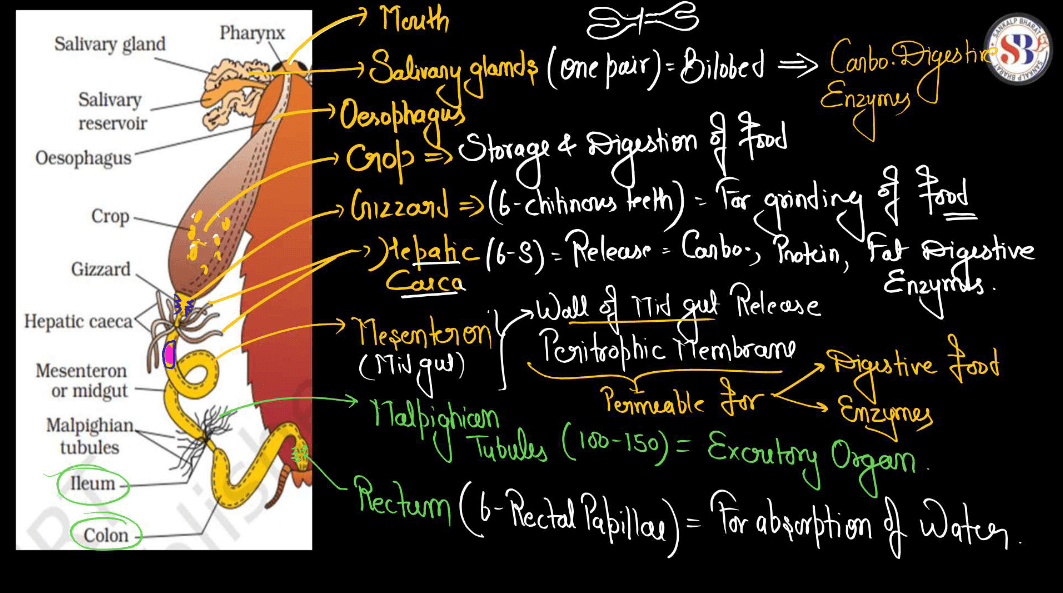 Pharynx
Salivary gland
Salivary
reservoir
Oesophagus
Crop
Gizzard
Hepatic caeca
Mesenteron
or midgut
Malpighian
tubules
Ileum
Colon
Mouth
Salivary glands (one pair) = Bilobed ⇒ Carbo. Digestive
Enzymes
Oesophagus
Crop ⇒ Storage & Digestion of food
Gizzard ⇒ (6-chitinous teeth) = For grinding of Food
Hepatic (6-8) = Release = Carbo., Protein, Fat Digestive
Caeca Enzymes.
Mesenteron
(Mid gut)
Wall of Mid gut Release
Peritrophic Membrane
Permeable for
Digestive food
Enzymes
Malpighian
Tubules (100-150) = Excretory Organ.
Rectum (6-Rectal Papillae) = For absorption of Water.
SANKALP BHARAT
SB